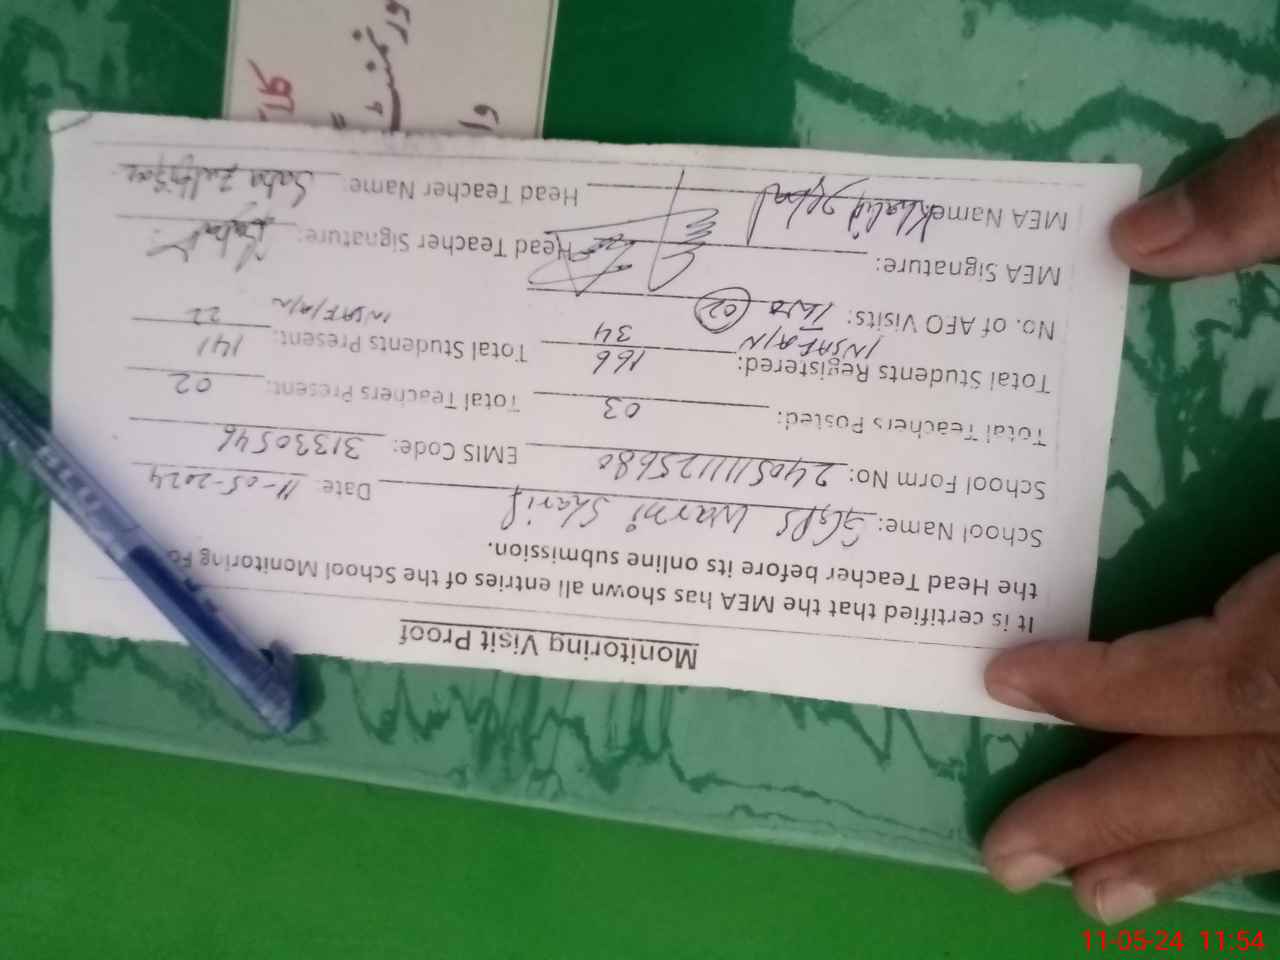 Monitoring Visit Proof
It is certified that the MEA has shown all entries of the School Monitoring Fo
the Head Teacher before its online submission.
School Name: GGPS Warmi Sharif Date: 11-05-2024
School Form No: 2405111125680 EMIS Code: 31330546
Total Teachers Posted: 03 Total Teachers Present: 02
Total Students Registered: 166 Total Students Present: 141
INSAF A/N 34 INSAF A/N 22
No. of AEO Visits: Two 02
MEA Signature: Head Teacher Signature:
MEA Name: Khalid Head Teacher Name: Saba Zulfiqar
11-05-24 11:54